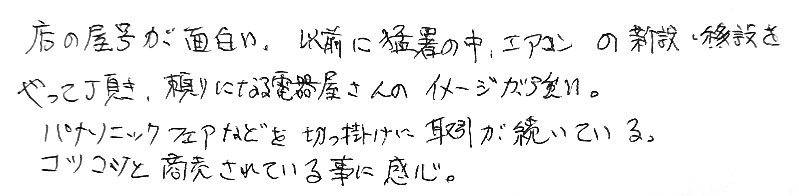 店の屋号が面白い。以前に猛暑の中、エアコンの新設・移設を
やって頂き、頼りになる電器屋さんのイメージが強い。
パナソニックフェアなどを切っ掛けに取引が続いている。
コツコツと商売されている事に感心。